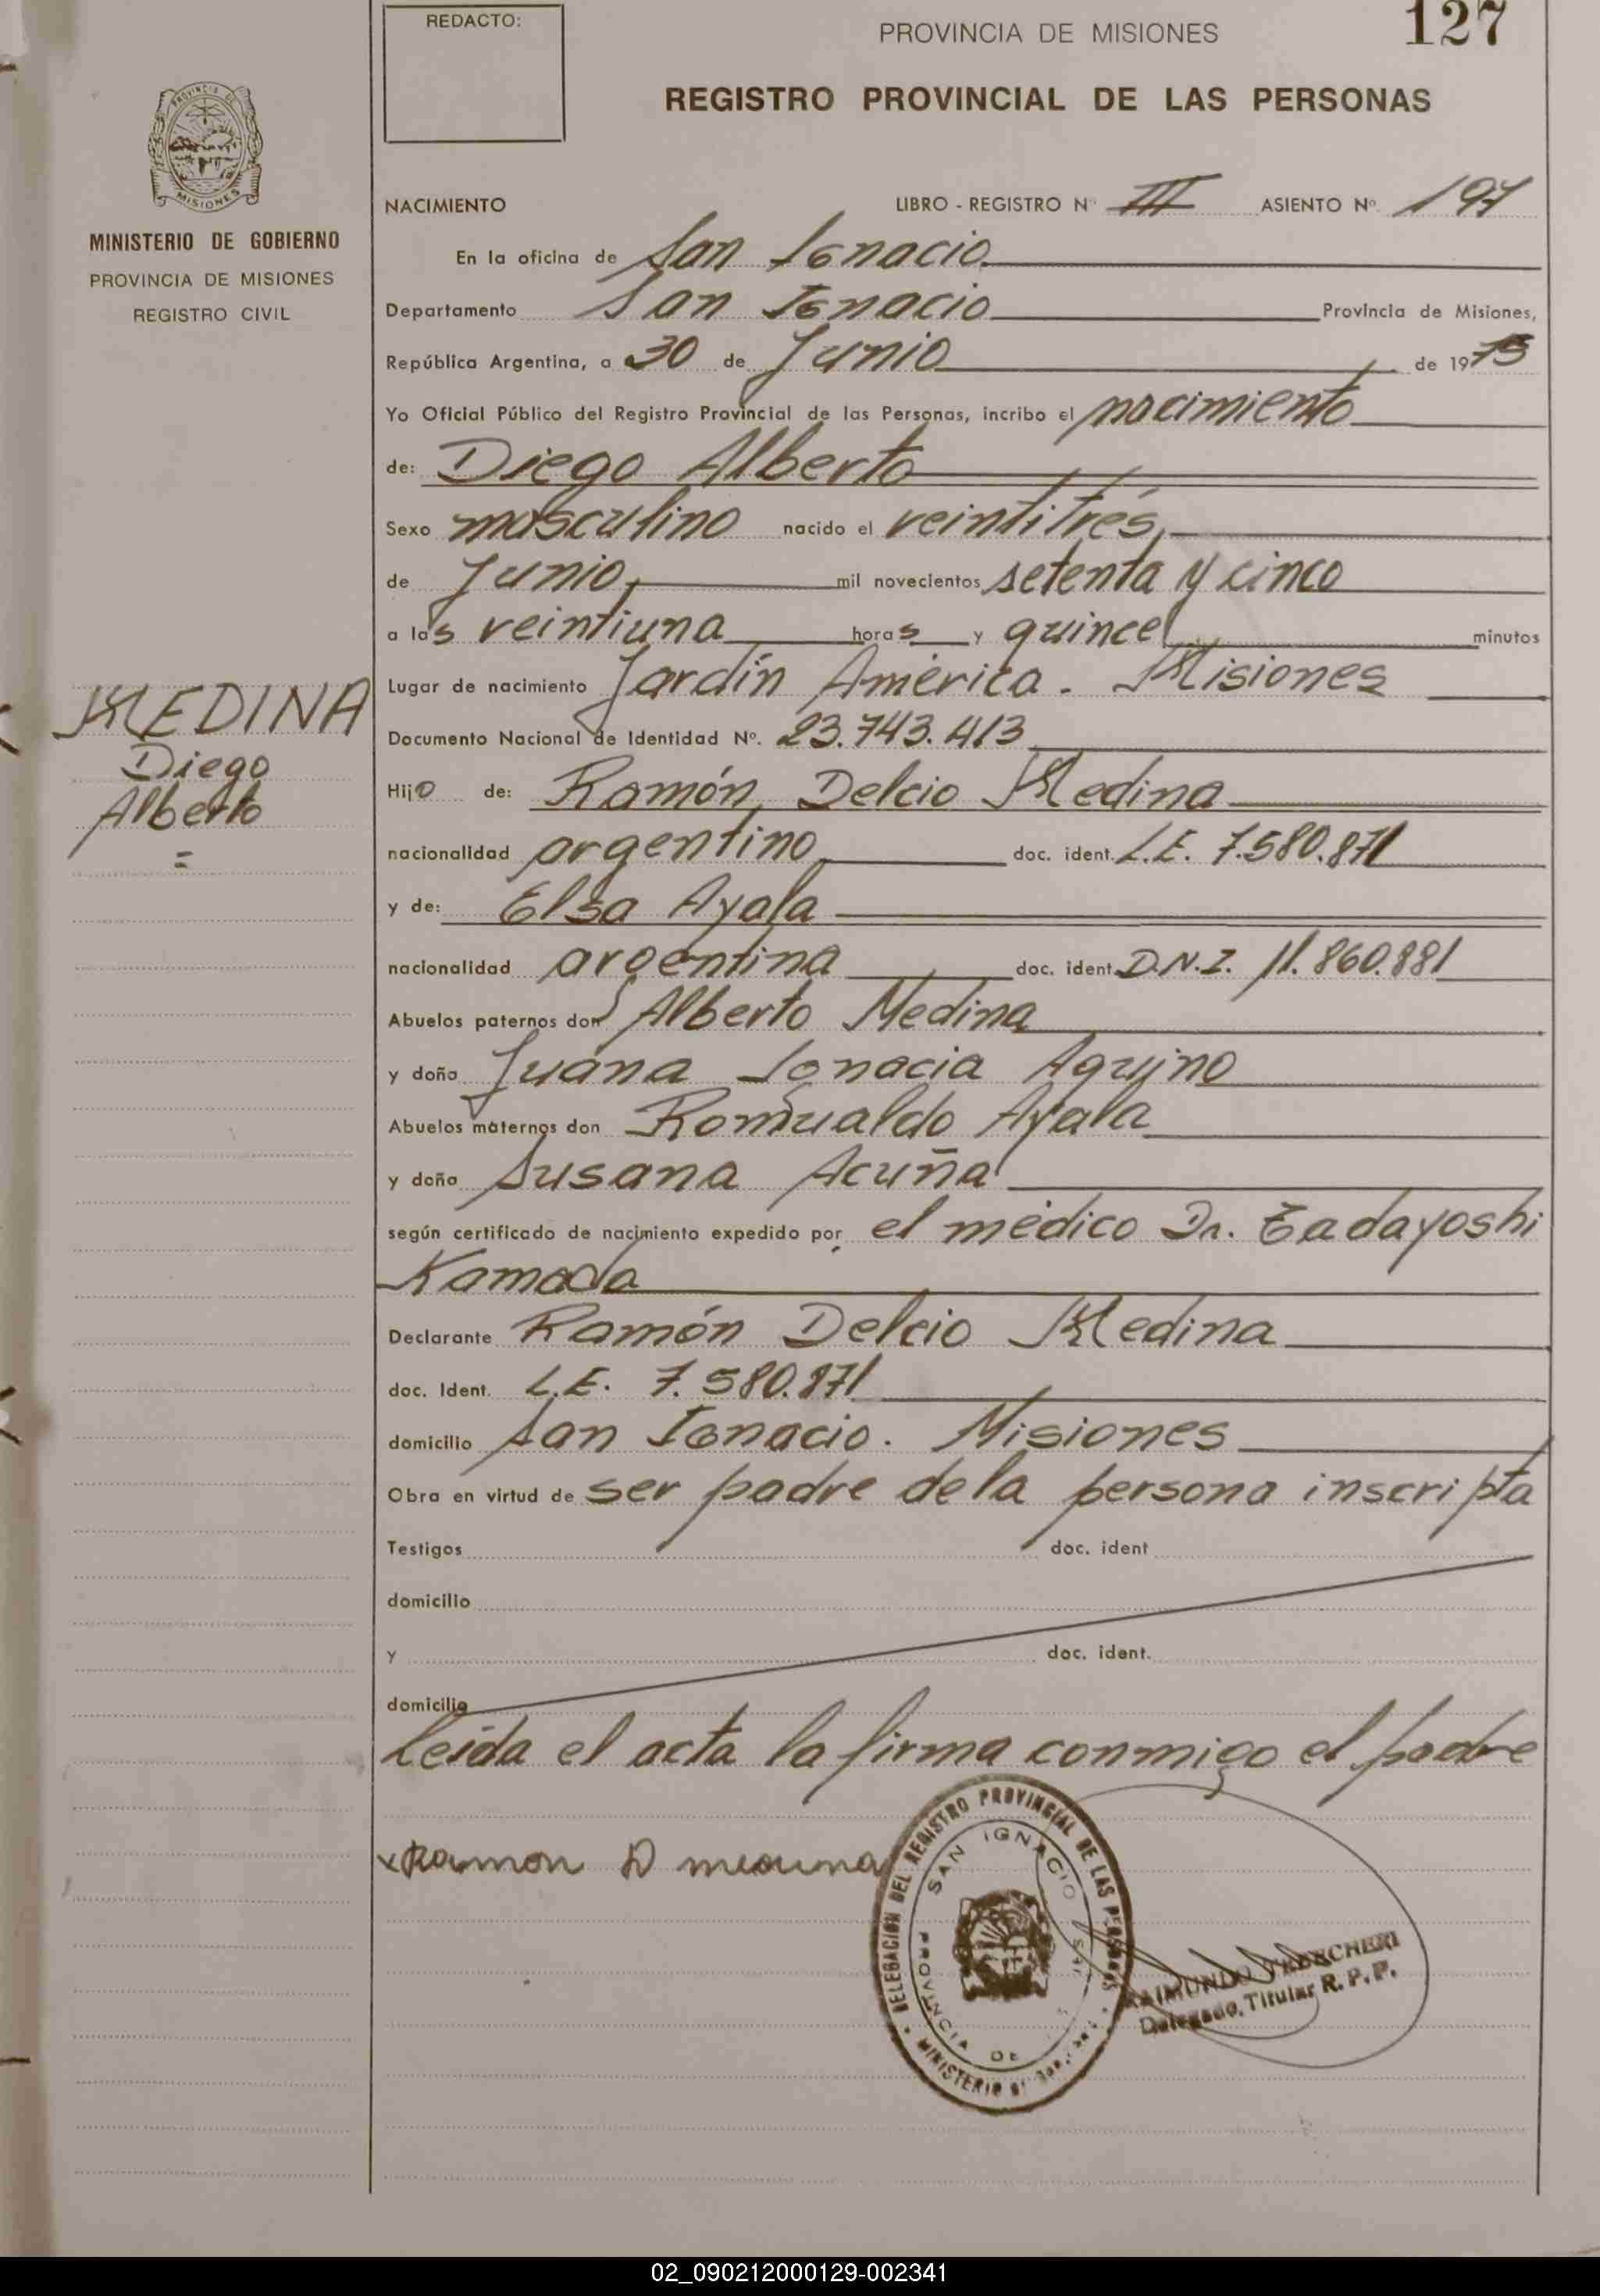 REDACTO:
PROVINCIA DE MISIONES
127
REGISTRO PROVINCIAL DE LAS PERSONAS
PROVINCIA DE
MISIONES
MINISTERIO DE GOBIERNO
PROVINCIA DE MISIONES
REGISTRO CIVIL
NACIMIENTO LIBRO - REGISTRO Nº III ASIENTO Nº 197
En la oficina de San Ignacio
Departamento San Ignacio Provincia de Misiones,
República Argentina, a 30 de Junio de 1975
Yo Oficial Público del Registro Provincial de las Personas, incribo el nacimiento
de: Diego Alberto
Sexo masculino nacido el veintitrés,
de Junio, mil novecientos setenta y cinco
a las veintiuna horas y quince minutos
Lugar de nacimiento Jardín América. Misiones
Documento Nacional de Identidad Nº. 23.743.413
MEDINA
Diego
Alberto
=
Hijo de: Ramón Delcio Medina
nacionalidad argentino, doc. ident. L.E. 7.580.871
y de: Elsa Ayala
nacionalidad argentina doc. ident. D.N.I. 11.860.881
Abuelos paternos don Alberto Medina
y doña Juana Ignacia Aquino
Abuelos maternos don Romualdo Ayala
y doña Susana Acuña
según certificado de nacimiento expedido por el médico Dr. Tadayoshi
Kamada
Declarante Ramón Delcio Medina
doc. Ident. L.E. 7.580.871
domicilio San Ignacio. Misiones
Obra en virtud de ser padre de la persona inscripta
Testigos doc. ident
domicilio
y doc. ident.
domicilio
Leída el acta la firma conmigo el padre
x Ramon D medina
DELEGACION DEL REGISTRO PROVINCIAL DE LAS PERSONAS
SAN IGNACIO
PROVINCIA DE
MINISTERIO DE
RAIMUNDO
Delegado Titular R. P. P.
02_090212000129-002341